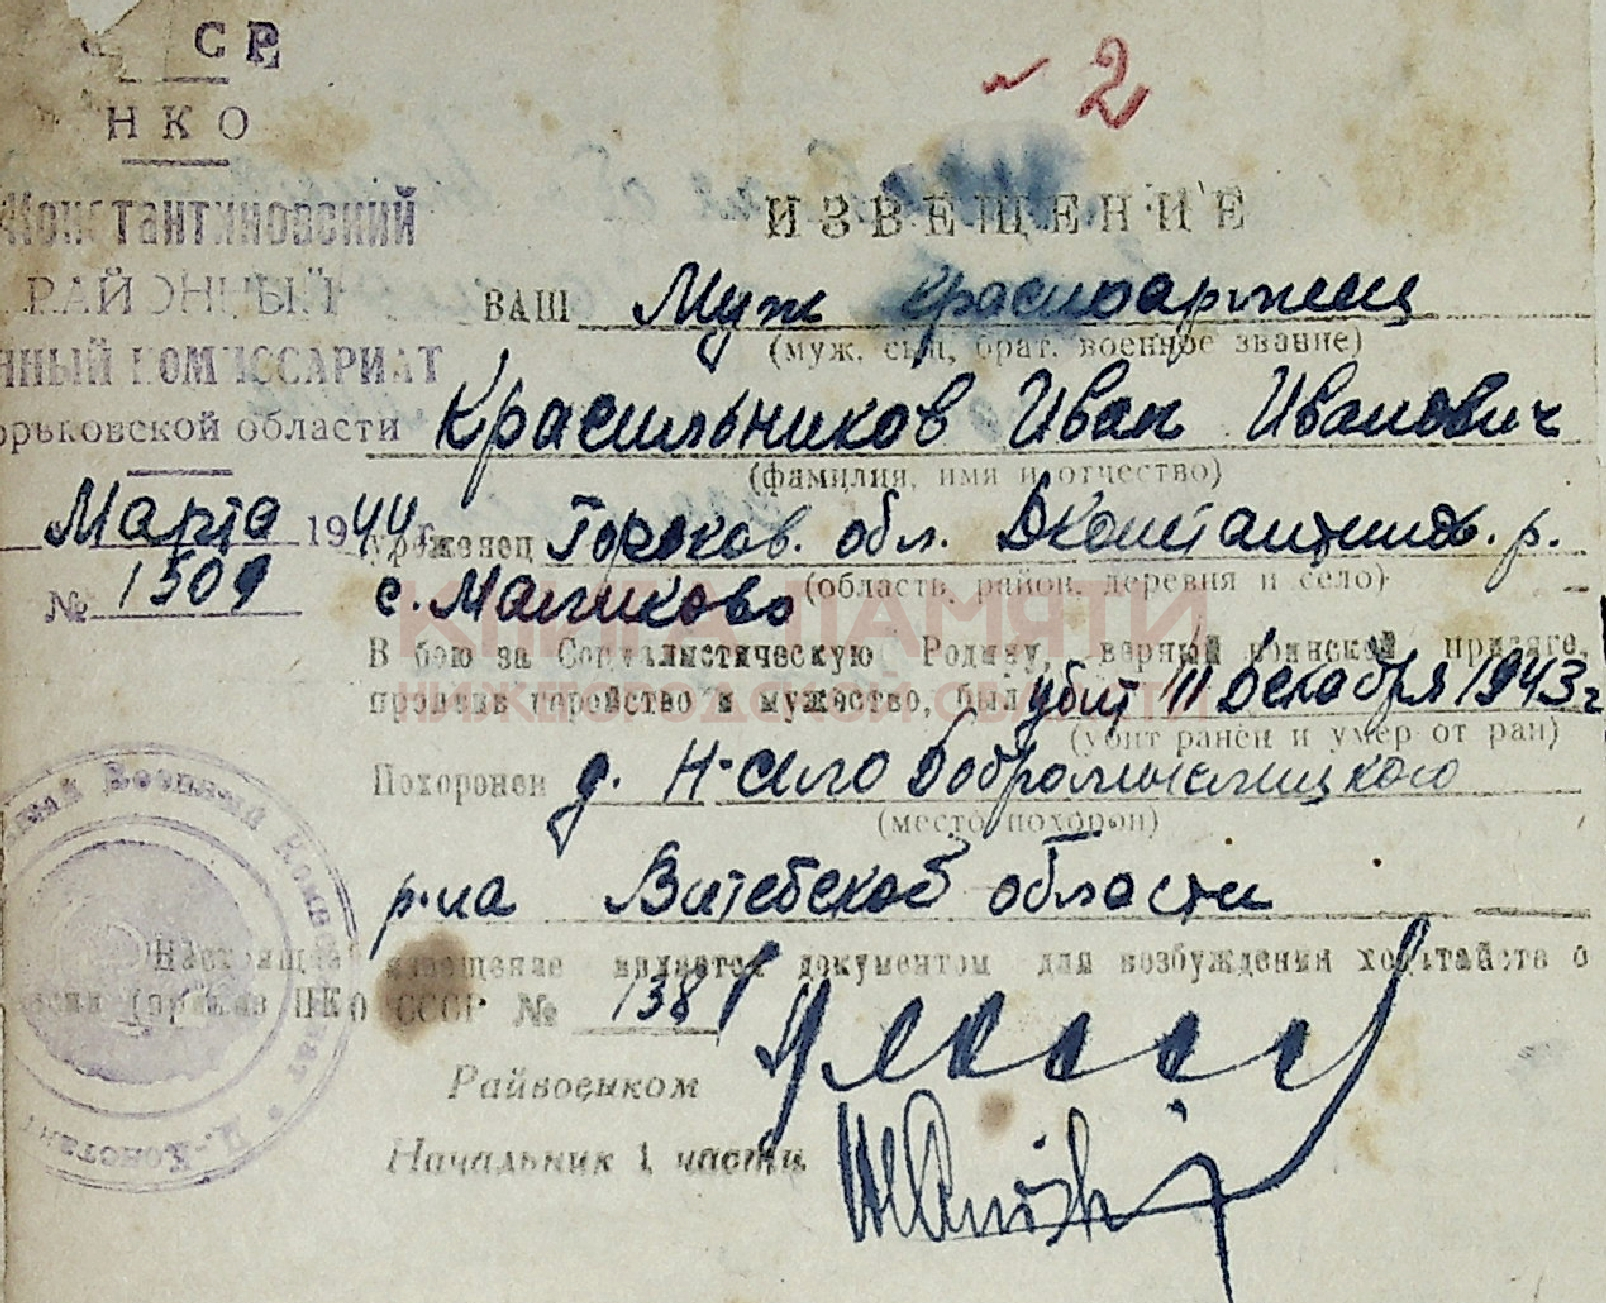 СР
НКО
Константиновский
РАЙОННЫЙ
ННЫЙ КОМИССАРИАТ
орьковской области
Марта 1944 г.
№ 1509
2
ИЗВЕЩЕНИЕ
ВАШ Муж красноармеец
(муж, сын, брат, военное звание)
Красильников Иван Иванович
(фамилия, имя и отчество)
уроженец Горьков. обл. Дконстантинов. р.
(область, район, деревня и село)
с. Маликово
КНИГА ПАМЯТИ
НИЖЕГОРОДСКОЙ ОБЛАСТИ
В бою за Социалистическую Родину, верный воинской присяге,
проявив геройство и мужество, был убит 11 Декабря 1943 г
(убит ранен и умер от ран)
Похоронен д. Н-село
(место похорон)
р-на Витебской области
Настоящее извещение является документом для возбуждения ходатайств о
(приказ НКО СССР № 138
Райвоенком
Начальник 1 части
Военный Комиссариат
Д.-Констант